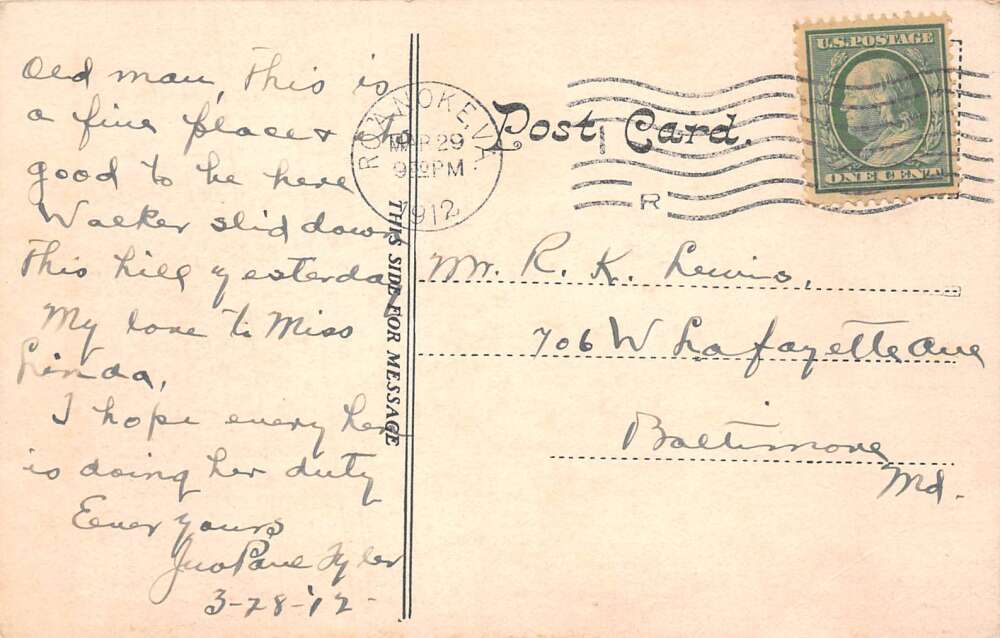 Old man, This is
a fine place & its
good to be here
Walker slid down
This hill yesterday
My love to Miss
Linda,
I hope every hen
is doing her duty
Ever yours
Jno Tyler
3-28-'12-
THIS SIDE FOR MESSAGE
ROANOKE, VA.
MAR 29
9 00 PM
1912
Post Card.
R
U.S. POSTAGE
ONE CENT
Mr. R. K. Lewis,
706 W Lafayette Ave
Baltimore
Md.